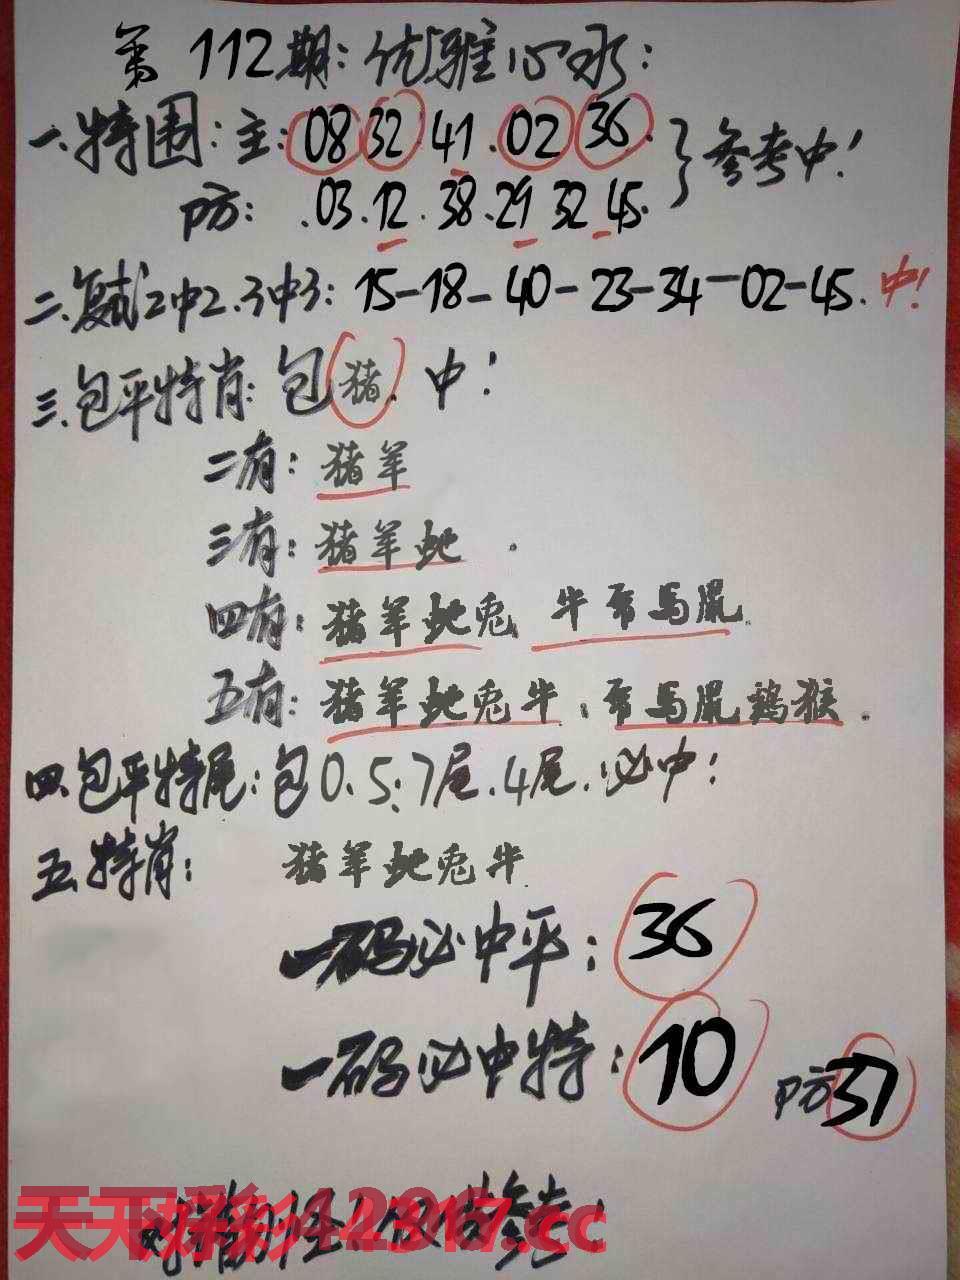 第112期：优雅心水：
一.特围：主：08 32 41.02 36. }参考中！
防：.03.12.38.29 32 45.
二.复式2中2.3中3：15-18-40-23-34-02-45.中！
三.包平特肖：包猪.中！
二有：猪羊
三有：猪羊蛇.
四有：猪羊蛇兔 牛 马鼠.
五有：猪羊蛇兔牛. 马鼠鸡猴.
四.包平特尾：包0.5.7尾.4尾.必中！
五.特肖：猪羊蛇兔牛
一码必中平：36
一码必中特：10 防37
天下彩 17.cc